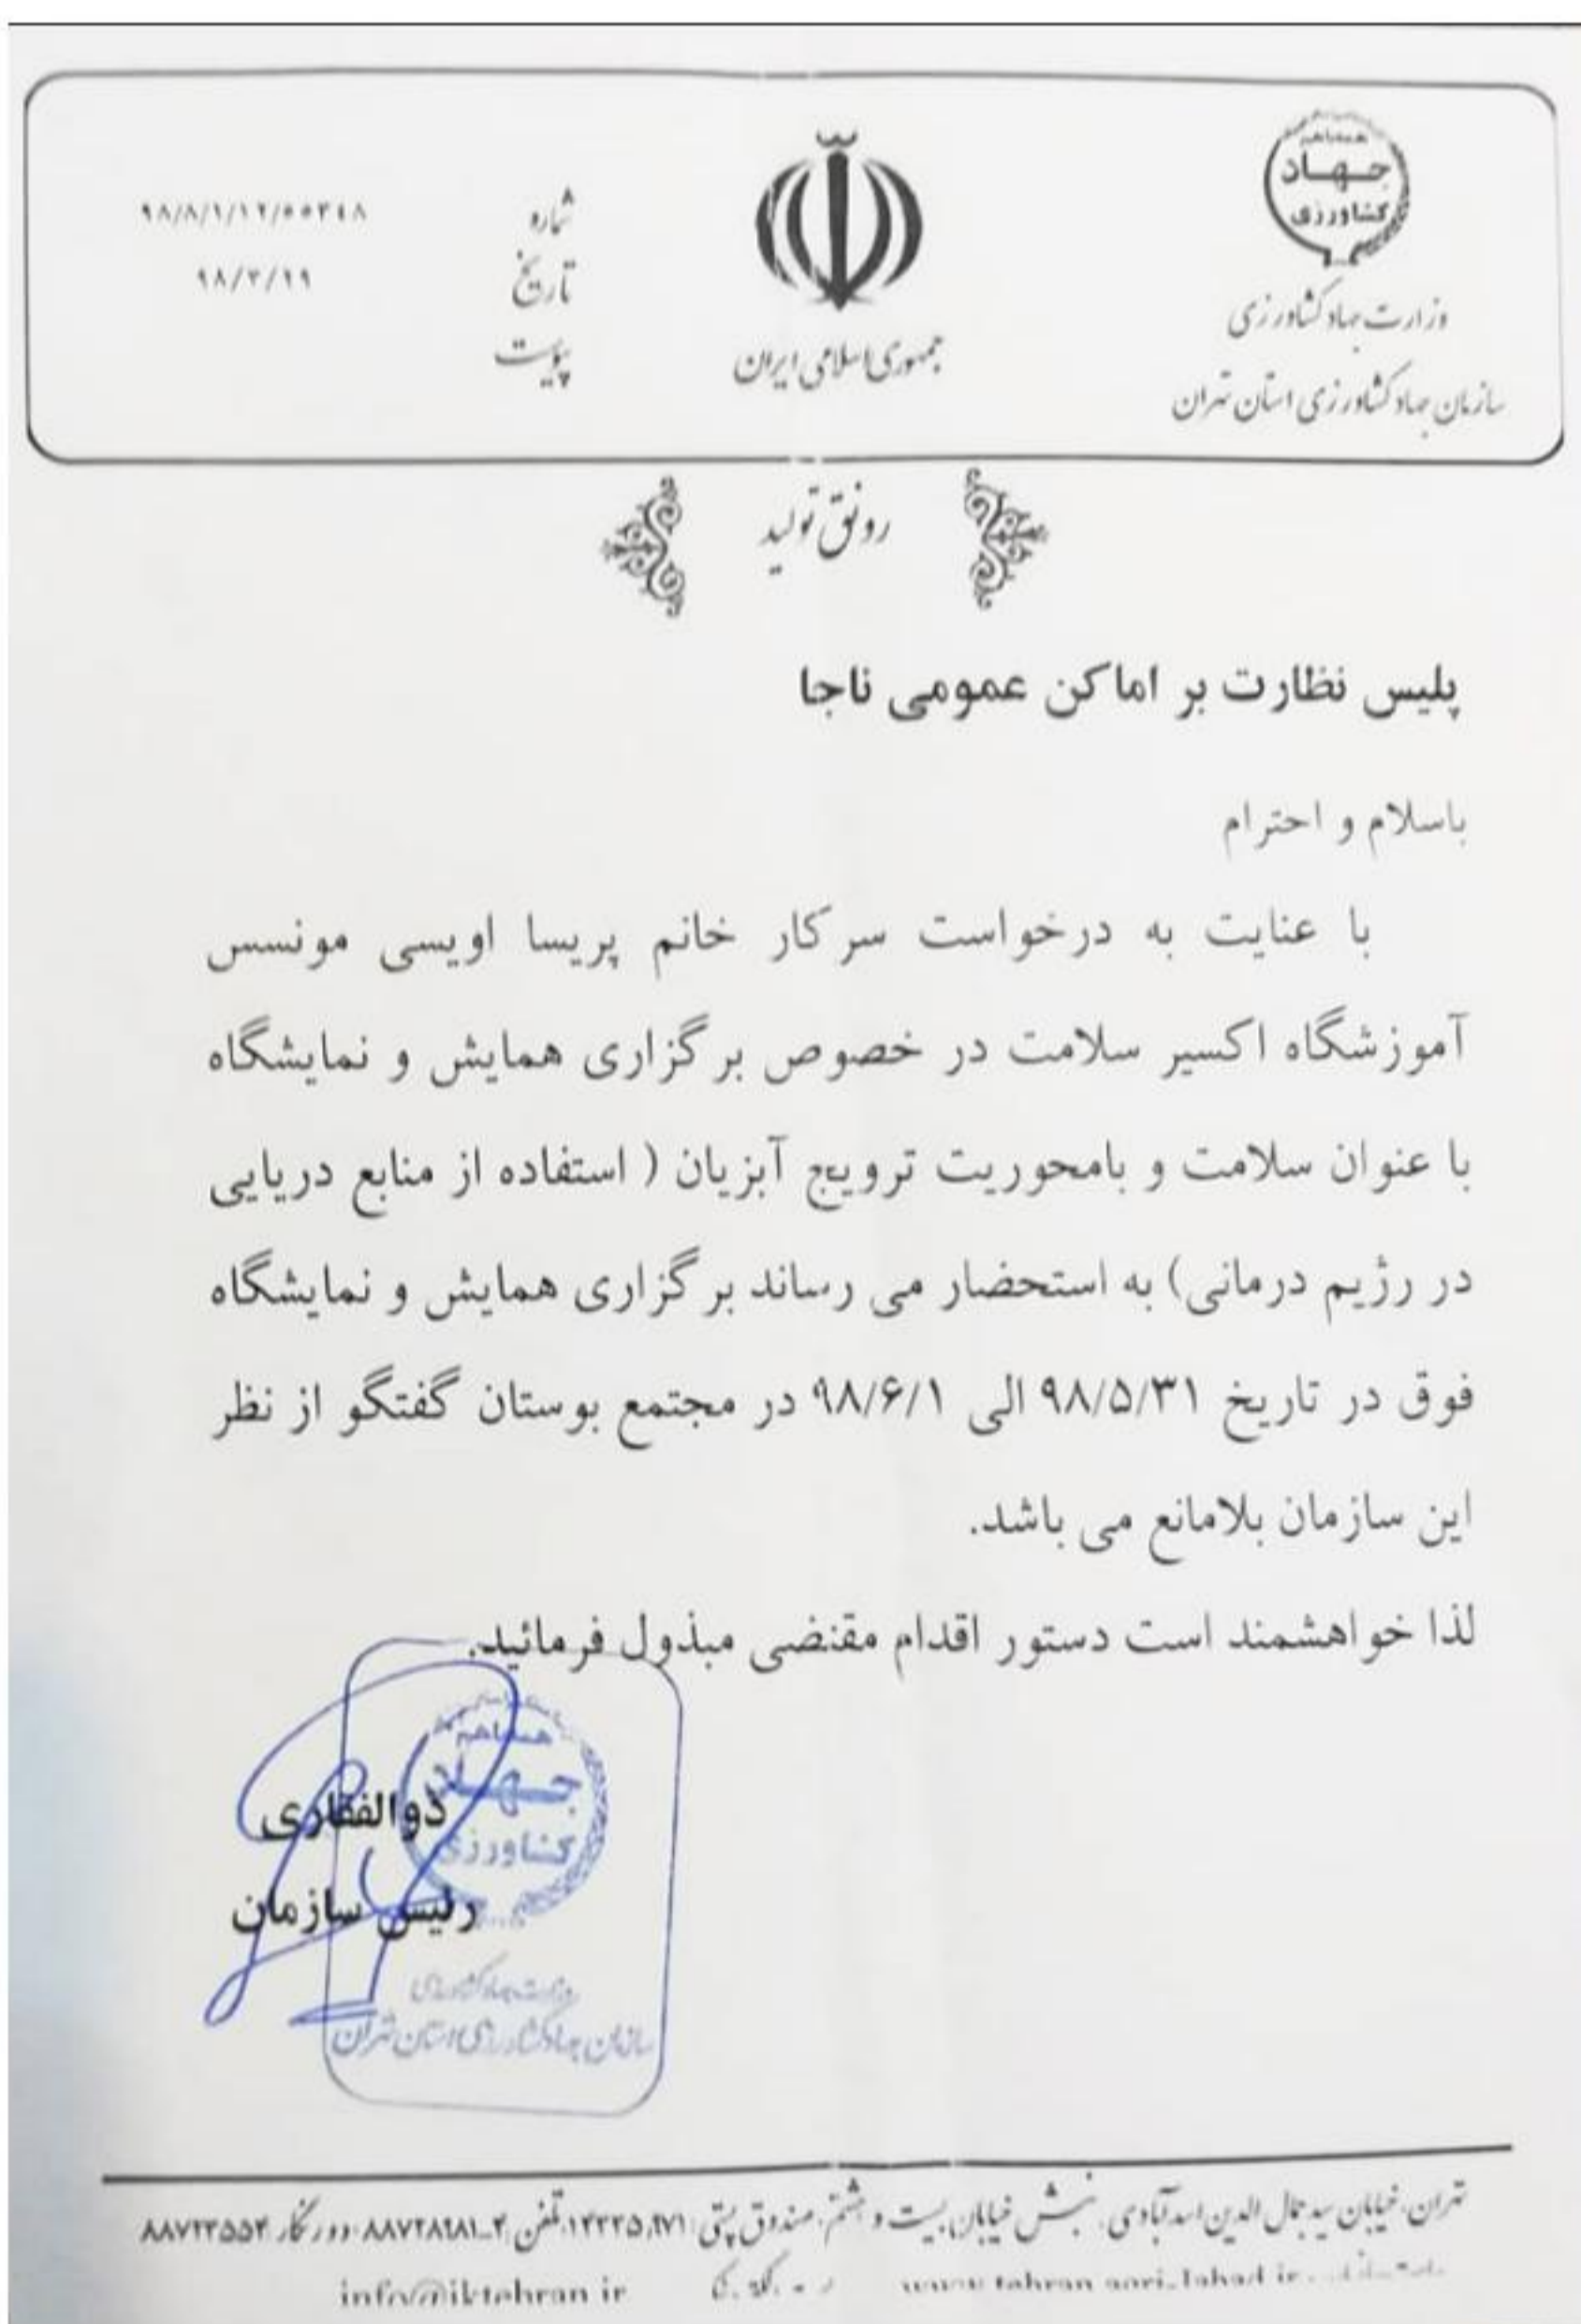 همه با هم
جهاد
کشاورزی
وزارت جهاد کشاورزی
سازمان جهاد کشاورزی استان تهران
جمهوری اسلامی ایران
شماره ۹۸/۸/۱/۱۲/۵۵۳٤۸
تاریخ ۹۸/۳/۱۹
پیوست
رونق تولید
پلیس نظارت بر اماکن عمومی ناجا
باسلام و احترام
با عنایت به درخواست سرکار خانم پریسا اویسی مونسس
آموزشگاه اکسیر سلامت در خصوص برگزاری همایش و نمایشگاه
با عنوان سلامت و بامحوریت ترویج آبزیان ( استفاده از منابع دریایی
در رژیم درمانی) به استحضار می رساند برگزاری همایش و نمایشگاه
فوق در تاریخ ۹۸/۵/۳۱ الی ۹۸/۶/۱ در مجتمع بوستان گفتگو از نظر
این سازمان بلامانع می باشد.
لذا خواهشمند است دستور اقدام مقتضی مبذول فرمائید.
همه با هم
جهاد
کشاورزی
ذوالفقاری
رئیس سازمان
وزارت جهاد کشاورزی
سازمان جهاد کشاورزی استان تهران
تهران، خیابان سید جمال الدین اسدآبادی، نبش خیابان بیست و هشتم، صندوق پستی: تلفن دورنگار ۸۸۷۲۳۵۵۲
info@iktehran.ir